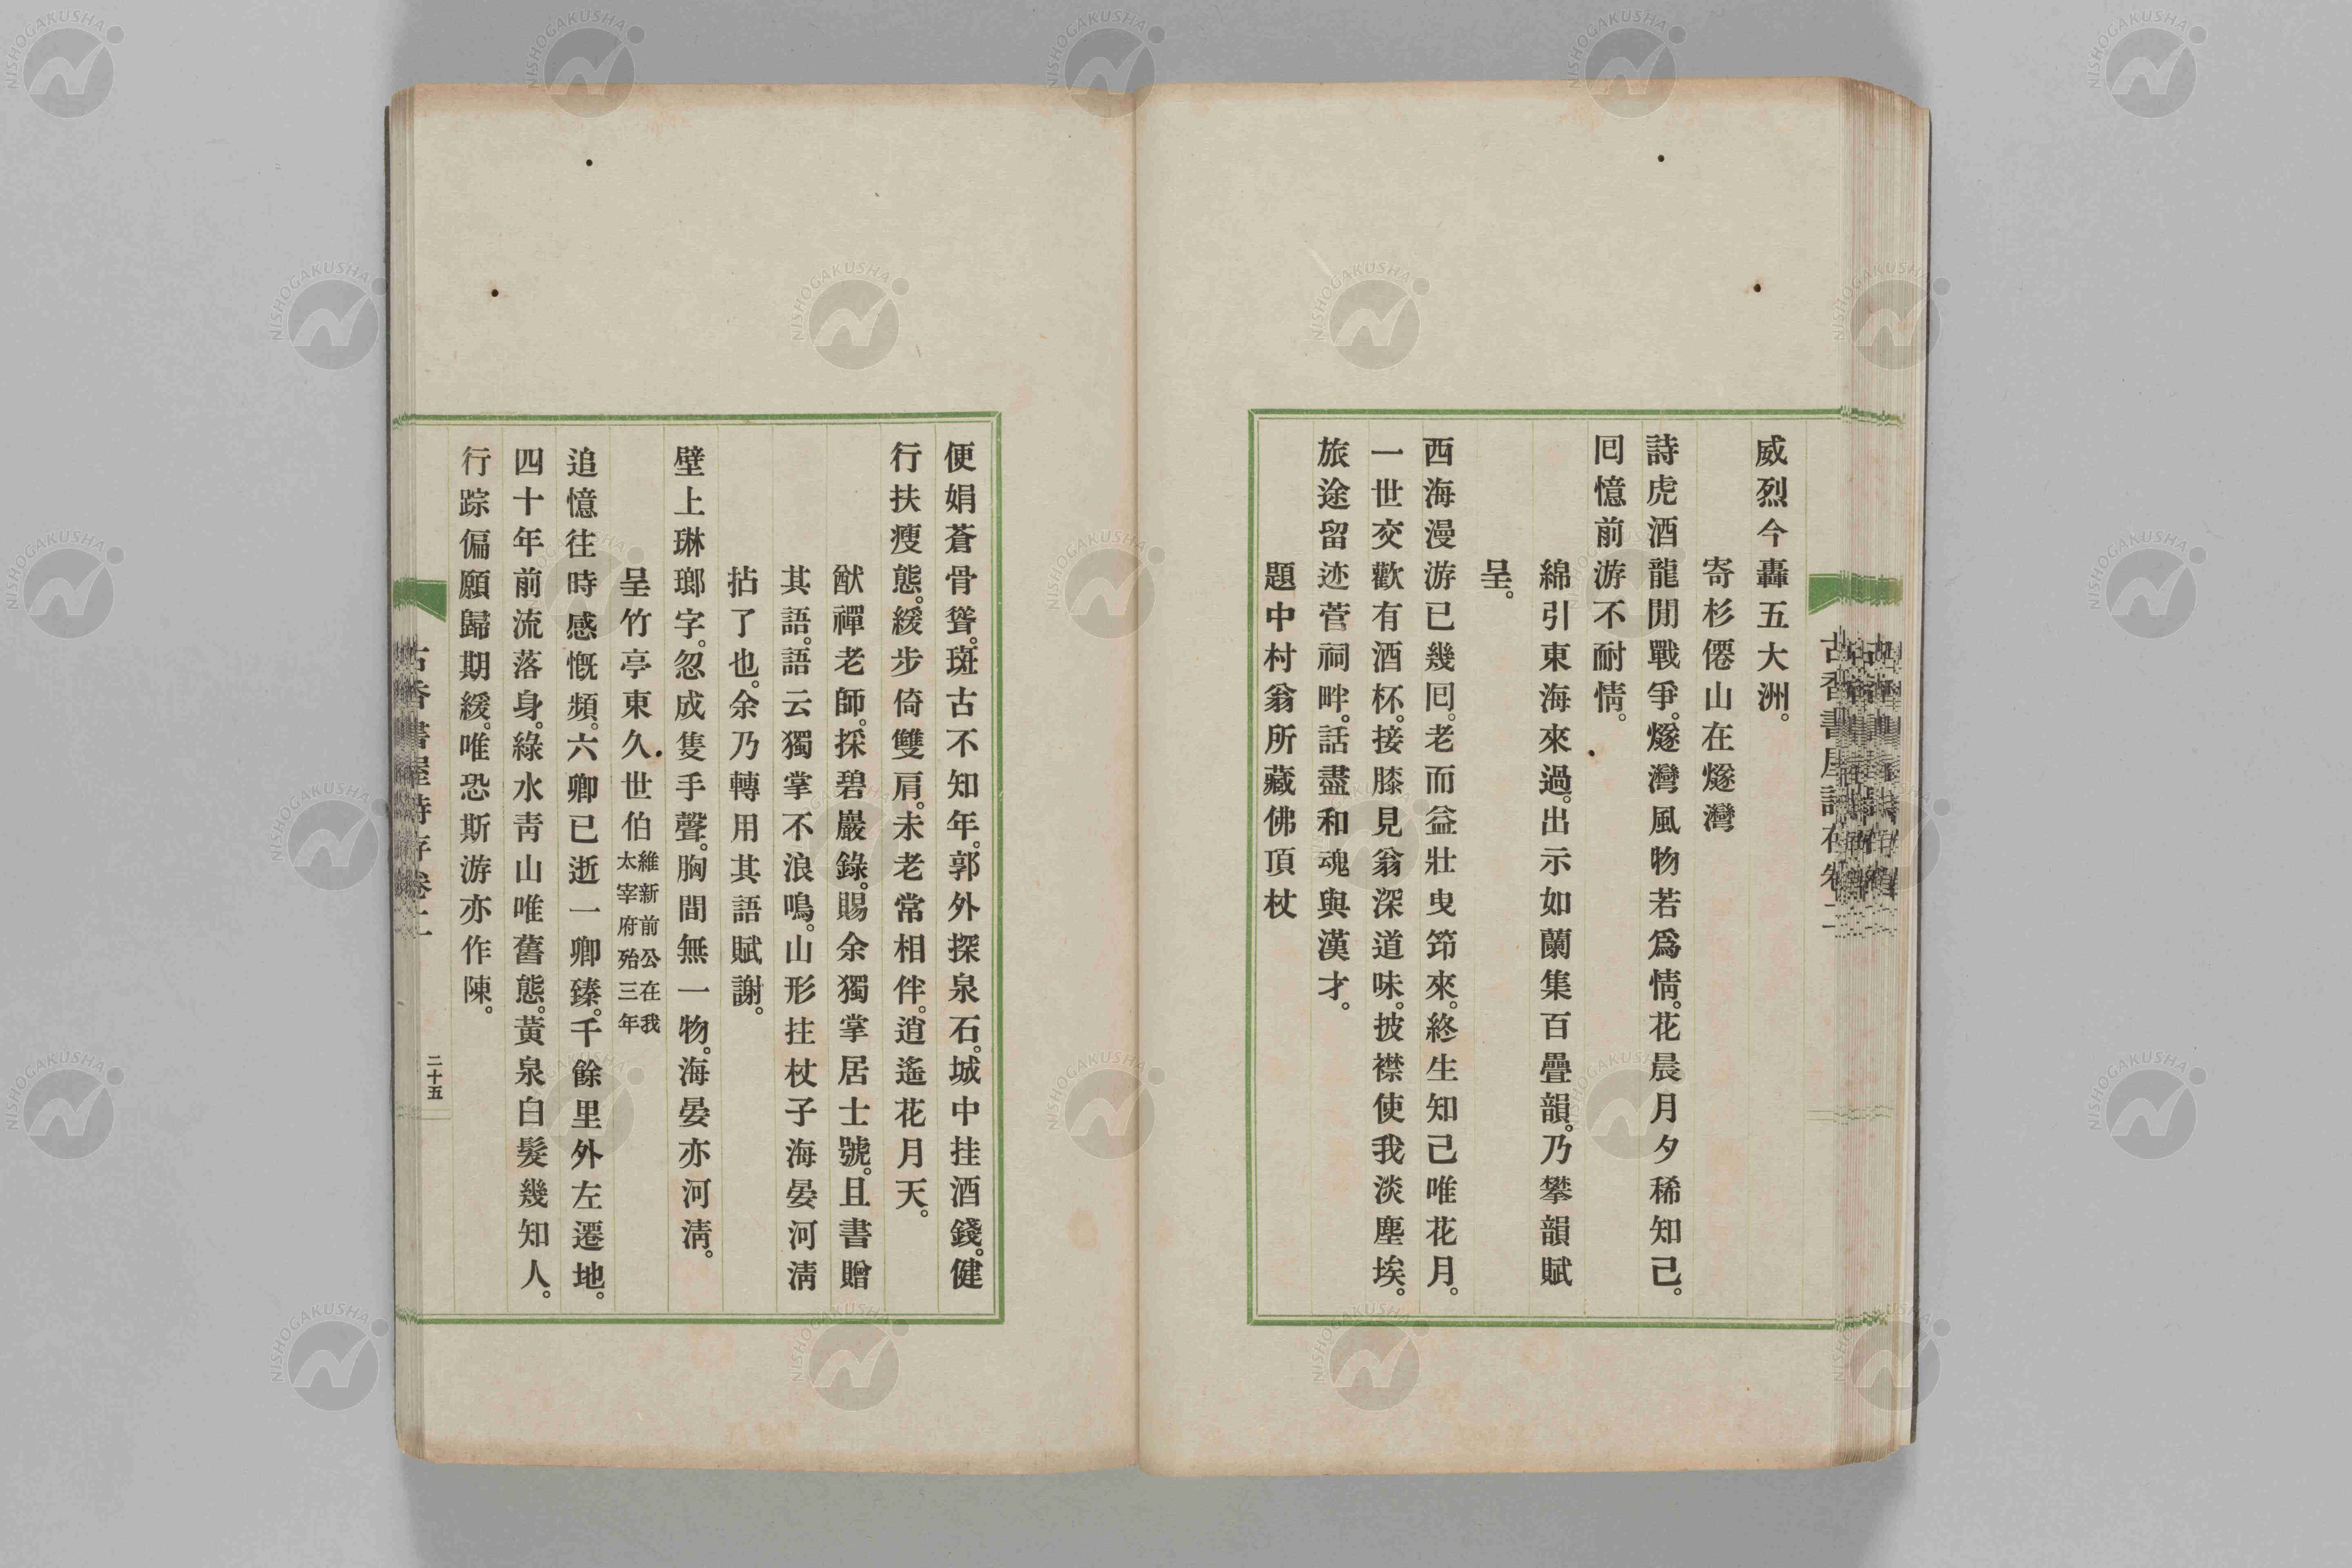 威烈今轟五大洲。
寄杉僊山在燧灣
詩虎酒龍閒戰爭。燧灣風物若爲情。花晨月夕稀知己。
囘憶前游不耐情。
綿引東海來過。出示如蘭集百疊韻。乃攀韻賦
呈。
西海漫游已幾囘。老而益壯曳笻來。終生知己唯花月。
一世交歡有酒杯。接膝見翁深道味。披襟使我淡塵埃。
旅途留迹菅祠畔。話盡和魂與漢才。
題中村翁所藏佛頂杖
便娟蒼骨聳。斑古不知年。郭外探泉石。城中挂酒錢。健
行扶瘦態。緩步倚雙肩。未老常相伴。逍遙花月天。
猷禪老師。採碧巖錄。賜余獨掌居士號。且書贈
其語。語云獨掌不浪鳴。山形拄杖子海晏河淸
拈了也。余乃轉用其語賦謝。
壁上琳瑯字。忽成隻手聲。胸間無一物。海晏亦河淸。
呈竹亭東久世伯維新前公在我太宰府殆三年
追憶往時感慨頻。六卿已逝一卿臻。千餘里外左遷地。
四十年前流落身。綠水靑山唯舊態。黃泉白髮幾知人。
行踪偏願歸期緩。唯恐斯游亦作陳。
古香書屋詩存卷二
二十五
NISHOGAKUSHA